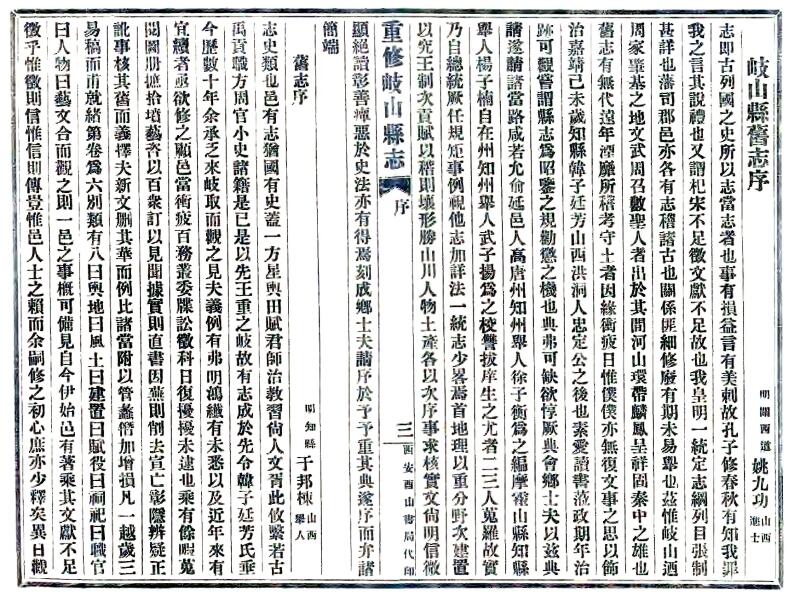 岐山縣舊志序
明關西道 姚九功 山西進士
志即古列國之史所以志當志者也事有損益言有美刺故孔子修春秋有知我罪
我之言其說禮也又謂杞宋不足徵文獻不足故也我皇明一統定志綱列目張制
甚詳也藩司郡邑亦各有志稽諸古也關係匪細修廢有期未易舉也茲惟岐山迺
周家肇基之地文武周召數聖人者出於其間河山環帶麟鳳呈祥固秦中之雄也
舊志有無代遠年湮靡所稽考守土者因緣衝疲日惟僕僕亦無復文事之思以飾
治嘉靖己未歲知縣韓子廷芳山西洪洞人忠定公之後也素愛讀書蒞政期年治
跡可觀嘗謂縣志爲昭鑒之規勸懲之機也典弗可缺欲惇厥典會鄉士夫以茲典
請遂請諸當路咸若允俞延邑人高唐州知州舉人徐子衡爲之編摩霍山縣知縣
舉人楊子楠自在州知州舉人武子揚爲之校讐拔庠生之尤者二三人蒐羅故實
乃自總統厥任規矩事例視他志加詳法一統志少畧焉首地理以重分野次建置
以究王制次貢賦以稽則壤形勝山川人物土產各以次序事求核實文尚明信微
顯絕讀彰善癉惡於史法亦有得焉刻成鄉士夫請序於予予重其典遂序而弁諸
簡端
重修岐山縣志 序 三 西安酉山書局代印
舊志序
明知縣 于邦棟 山西舉人
志史類也邑有志猶國有史蓋一方星輿田賦君師治教習尚人文胥此攸繫若古
禹貢職方周官小史諸籍是已是以先王重之岐故有志成於先令韓子廷芳氏垂
今歷數十年余承乏來岐取而觀之見夫義例有弗明鴻纖有未悉以及近年來有
宜續者亟欲修之顧邑當衝疲百務叢委牒訟徵科日復擾擾未遑也乘有餘暇蒐
閱圖册摭拾墳藝咨以百衆訂以見聞據實則直書因蕪則削去宣亡彰隱辨疑正
訛事核其舊而義擇夫新文删其華而例比諸當附以管蠡僭加增損凡一越歲三
易稿而甫就緒第卷爲六別類有八曰輿地曰風土曰建置曰賦役曰祠祀曰職官
曰人物曰藝文合而觀之則一邑之事概可備見自今伊始邑有著乘其文獻不足
徵乎惟徵則信惟信則傳豈惟邑人士之賴而余嗣修之初心庶亦少釋矣異日觀